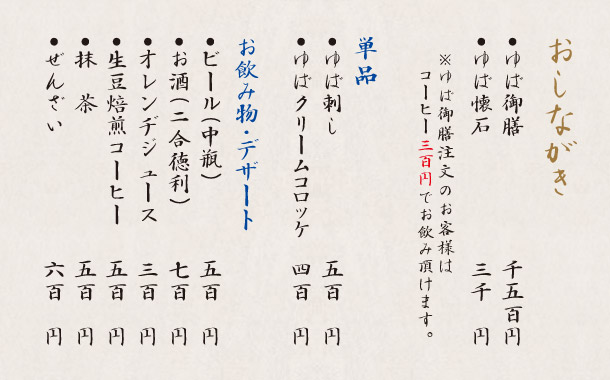 おしながき
●ゆば御膳 千五百円
●ゆば懐石 三千 円
※ゆば御膳注文のお客様は
コーヒー三百円でお飲み頂けます。
単品
●ゆば刺し 五百 円
●ゆばクリームコロッケ 四百 円
お飲み物・デザート
●ビール(中瓶) 五百 円
●お酒(二合徳利) 七百 円
●オレンヂジュース 三百 円
●生豆焙煎コーヒー 五百 円
●抹 茶 五百 円
●ぜんざい 六百 円